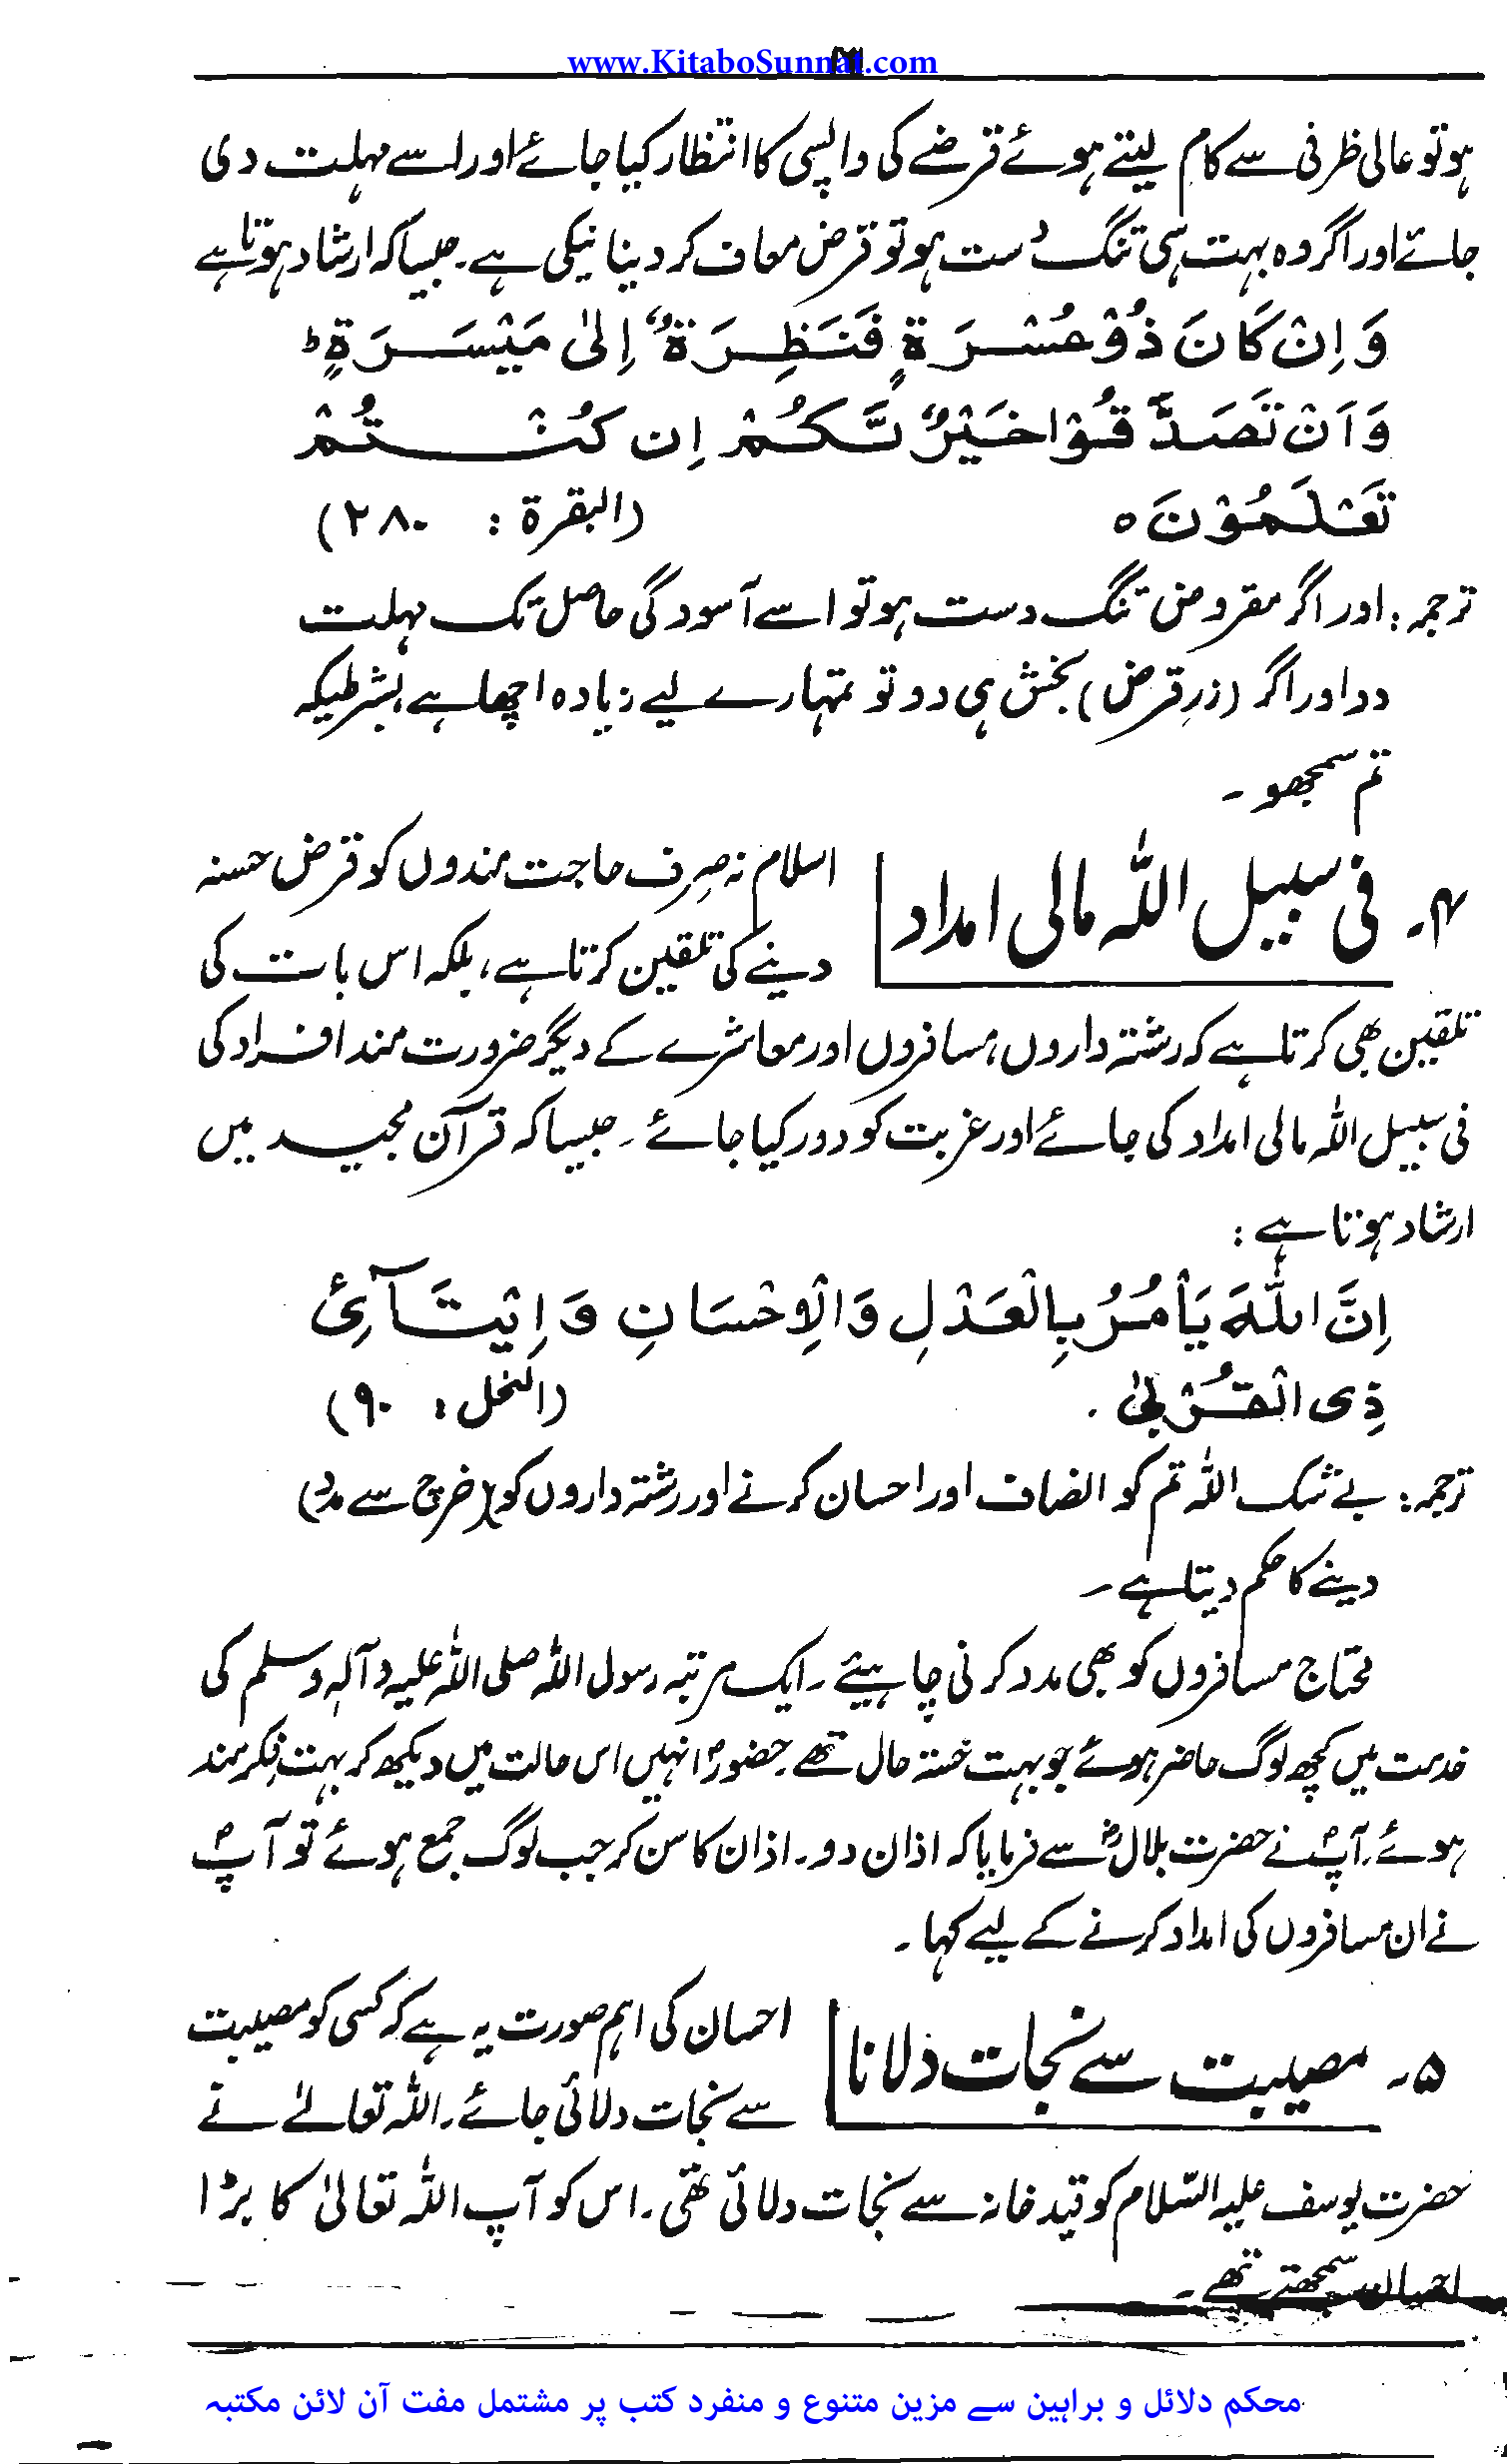 www.KitaboSunnat.com
ہو تو عالی ظرفی سے کام لیتے ہوئے قرضے کی واپسی کا انتظار کیا جائے اور اسے مہلت دی
جائے اور اگر وہ بہت ہی تنگ دست ہو تو قرض معاف کر دینا نیکی ہے۔ جیسا کہ ارشاد ہوتا ہے
وَ اِنْ كَانَ ذُوْ عُسْرَةٍ فَنَظِرَةٌ اِلٰى مَيْسَرَةٍ ؕ
وَ اَنْ تَصَدَّقُوْا خَيْرٌ لَّكُمْ اِن كُنْتُمْ
تَعْلَمُوْنَ ه (البقرة : ۲۸۰)
ترجمہ: اور اگر مقروض تنگ دست ہو تو اسے آسودگی حاصل تک مہلت
دو اور اگر (زرِ قرض) بخش ہی دو تو تمہارے لیے زیادہ اچھا ہے، بشرطیکہ
تم سمجھو۔
۴۔ فی سبیل اللہ مالی امداد
اسلام نہ صرف حاجت مندوں کو قرض حسنہ
دینے کی تلقین کرتا ہے، بلکہ اس بات کی
تلقین بھی کرتا ہے کہ رشتہ داروں، مسافروں اور معاشرے کے دیگر ضرورت مند افراد کی
فی سبیل اللہ مالی امداد کی جائے اور غربت کو دور کیا جائے۔ جیسا کہ قرآن مجید میں
ارشاد ہوتا ہے :
اِنَّ اللّٰهَ يَاْمُرُ بِالْعَدْلِ وَ الْاِحْسَانِ وَ اِيْتَآئِ
ذِى الْقُرْبٰى . (النحل : ۹۰)
ترجمہ: بے شک اللہ تم کو انصاف اور احسان کرنے اور رشتہ داروں کو (خرچ سے مدد)
دینے کا حکم دیتا ہے۔
محتاج مسافروں کو بھی مدد کرنی چاہیئے۔ ایک مرتبہ رسول اللہ صلی اللہ علیہ وآلہ وسلم کی
خدمت میں کچھ لوگ حاضر ہوئے جو بہت خستہ حال تھے۔ حضورؐ انہیں اس حالت میں دیکھ کر بہت فکر مند
ہوئے۔ آپؐ نے حضرت بلالؓ سے فرمایا کہ اذان دو۔ اذان کا سن کر جب لوگ جمع ہوئے تو آپؐ
نے ان مسافروں کی امداد کرنے کے لیے کہا۔
۵۔ مصیبت سے نجات دلانا
احسان کی اہم صورت یہ ہے کہ کسی کو مصیبت
سے نجات دلائی جائے۔ اللہ تعالیٰ نے
حضرت یوسف علیہ السّلام کو قید خانہ سے نجات دلائی تھی۔ اس کو آپ اللہ تعالیٰ کا بڑا
احسان سمجھتے تھے۔
محکم دلائل و براہین سے مزین متنوع و منفرد کتب پر مشتمل مفت آن لائن مکتبہ